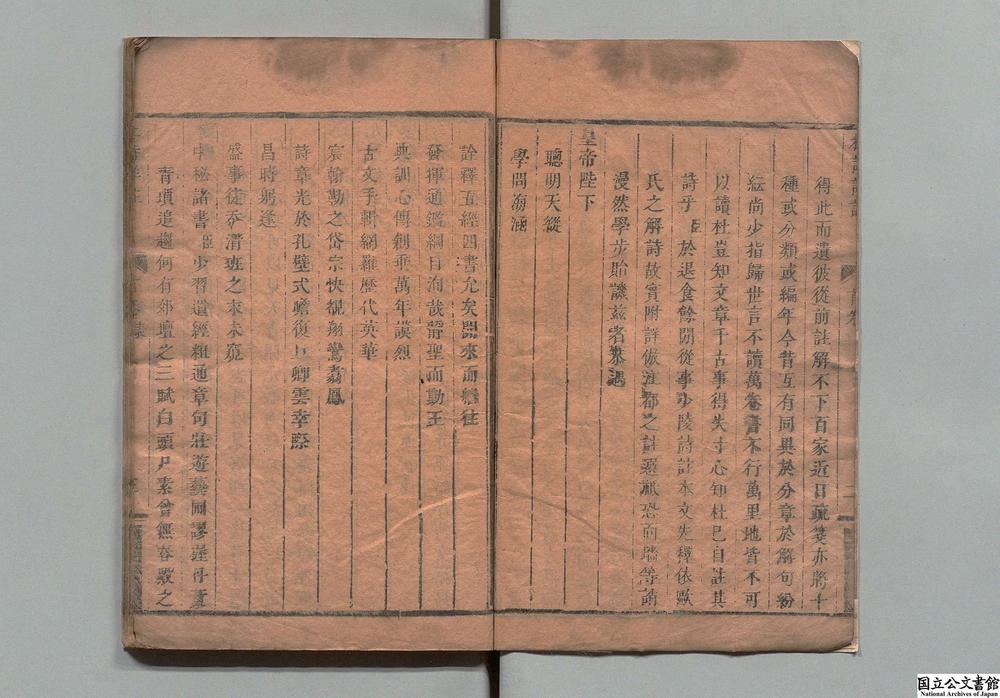 得此而遺彼從前註解不下百家近日疏箋亦將十
種或分類或編年今昔互有同異於分章於解句紛
紜尚少指歸世言不讀萬卷書不行萬里地皆不可
以讀杜豈知文章千古事得失寸心知杜已自註其
詩乎臣於退食餘閒從事少陵詩註本文先繹依歐
氏之解詩故實附詳倣注都之註選祇恐面墻等誚
漫然學步貽譏茲者恭遇
皇帝陛下
聰明天縱
學問海涵
詮釋五經四書允矣開來而繼往
發揮通鑑綱目洵哉靜聖而動王
典訓心傳創垂萬年謨烈
古文手輯網羅歷代英華
宸翰勒之岱宗快覩翔鸞翥鳳
詩章光於孔壁式瞻復旦卿雲幸際
昌時躬逢
盛事徒忝清班之末未窺
中秘諸書臣少習遺經粗通章句壯遊藝圃謬
青瑣追趨何有郊壇之三賦白頭尸素曾無春殿之
国立公文書館
National Archives of Japan